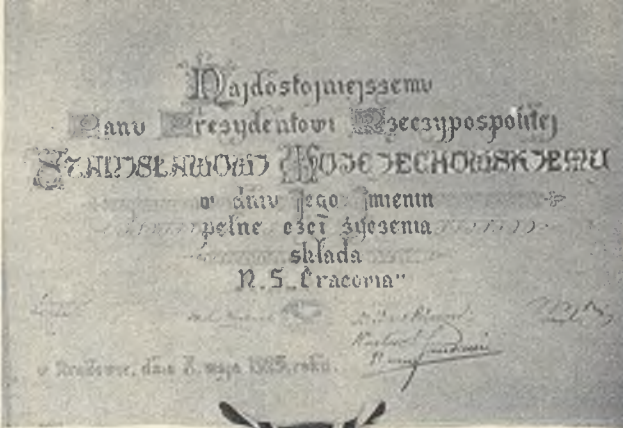 Najdostojniejszemu
Panu Prezydentowi Rzeczypospolitej
STANISŁAWOWI WOJCIECHOWSKIEMU
w dniu Jego Imienin
pełne czci życzenia
składa
K. S. „Cracovia"
w Krakowie, dnia 8. maja 1925. roku.